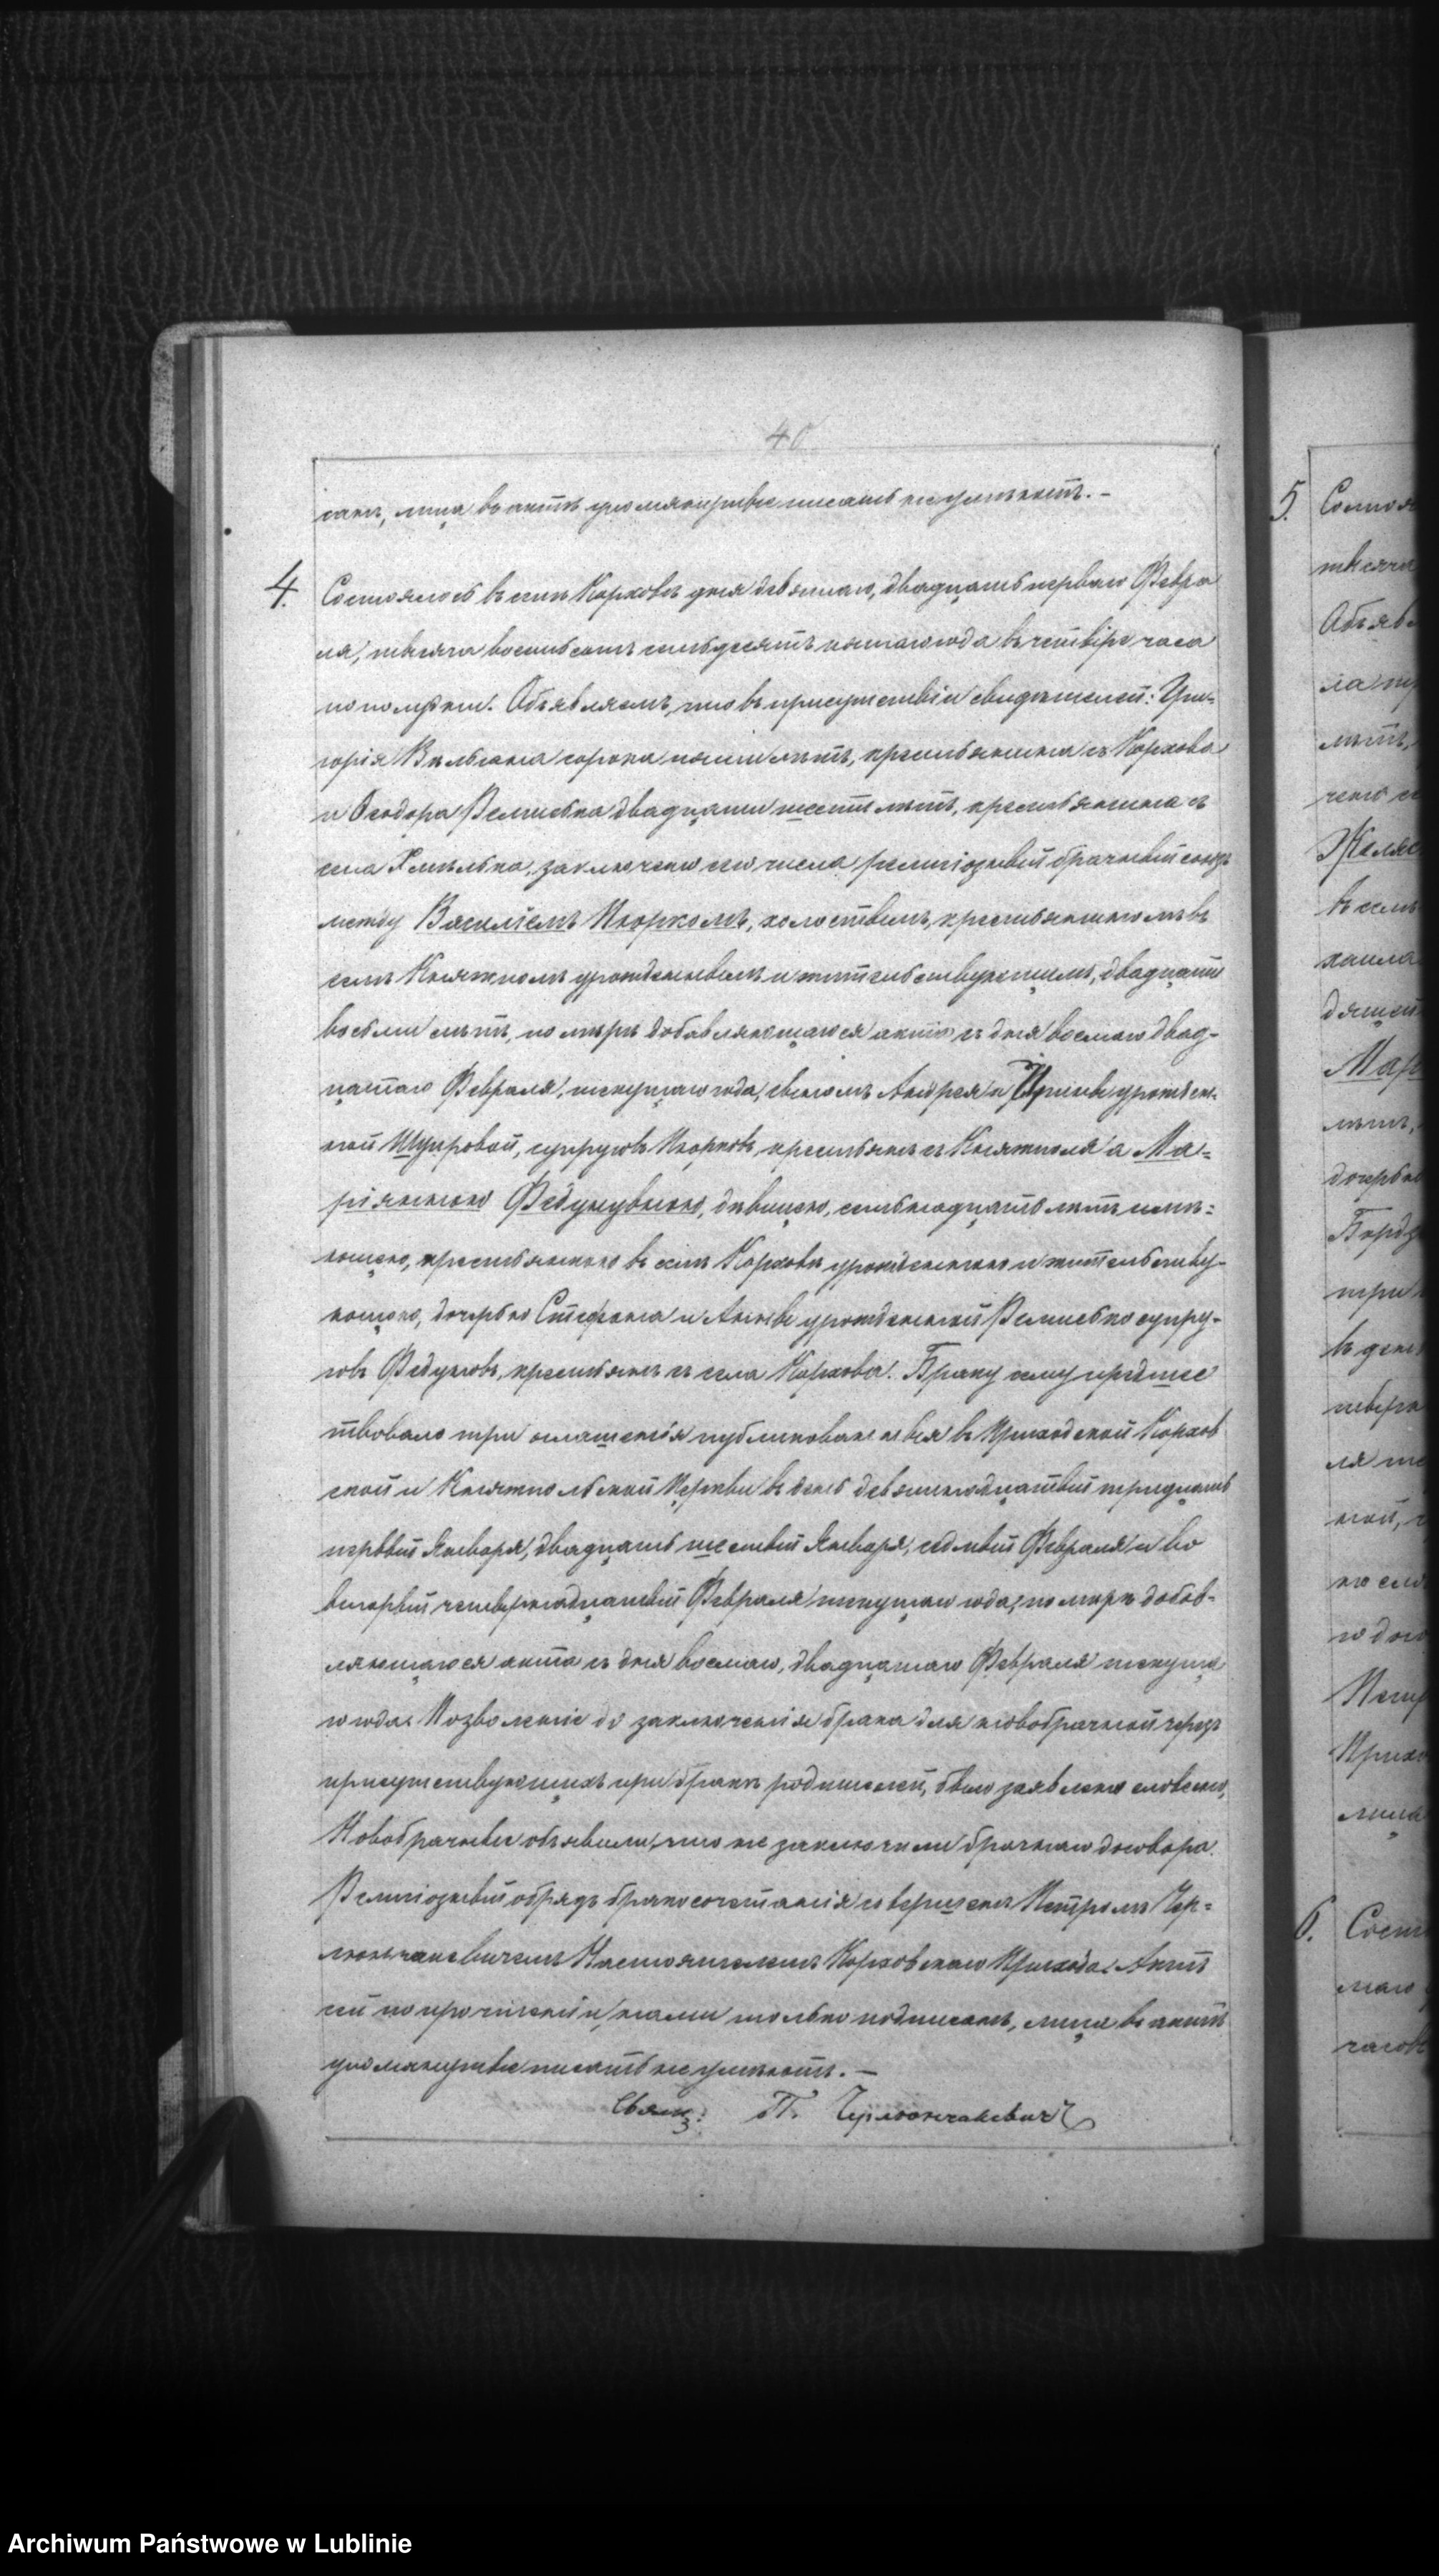 40
санъ, лица въ актѣ упомянутые писать не умѣютъ. –
4. Состоялось въ селѣ Корховѣ дня девятаго, двадцать перваго Февра
ля, тысяча восемьсотъ семьдесятъ пятаго года въ четвіре часа
по полудни. Объявляемъ, что въ присутствіи свидѣтелей: Гри-
горія Вильгана сорока пяти лѣтъ, крестьянина съ Корхова
и Ѳеодора Велисько двадцати шести лѣтъ, крестьянина съ
села Хмѣлька, заключено сего числа религіозный брачный союзъ
между Василіемъ Пюркомъ, холостымъ, крестьяниномъ въ
селѣ Княжполѣ урожденнымъ и жительствующимъ, двадцати
восьми лѣтъ, по мѣрѣ добавляющагося акта съ дня восмаго двад-
цатаго Февраля, текущаго года, сыномъ Андрея и Ирины урожден-
ной Щуровой, супруговъ Пюрковъ, крестьянъ съ Княжполя а Ма-
ріянною Федунувною, дѣвицею, семьнадцать лѣтъ имѣ-
ющею, крестьянкою въ селѣ Корховѣ урожденною и жительству-
ющею, дочерью Стефана и Анны урожденной Велисько супру-
говъ Федуновъ, крестьянъ съ села Корхова. Браку сему предше
твовало три оглашенія публикованныя въ Приходской Корхов
ской и Княжпольской Церкви въ день девятнадцатый тридцать
первый Января, двадцать шестый Января, седмый Февраля и во
вторый четвернадцатый Февраля текущаго года, по мѣрѣ добав-
ляющагося акта съ дня восмаго, двадцатаго Февраля текуща
го года. Позволеніе до заключенія брака для новобрачной чрезъ
присутствующихъ при бракѣ родителей, было заявлено словесно,
Новобрачные объявили, что не заключили брачнаго договора.
Религіозный обрядъ бракосочетанія совершенъ Петромъ Чер-
люнчакевичемъ Настоятелемъ Корховскаго Прихода. Актъ
сей по прочтеніи, нами только подписанъ, лица въ актѣ
упомянутые писать не умѣютъ. –
Свящ. П. Черлюнчакевичъ
5. Состоя
тысяча
Объяв
ла
лѣтъ,
Желяс
въ селѣ
хаила
дящей
Мар
лѣтъ,
дочерью
три
въ день
ля
ной,
Петр
Прихо
лица
6. Состо
маго
часовъ